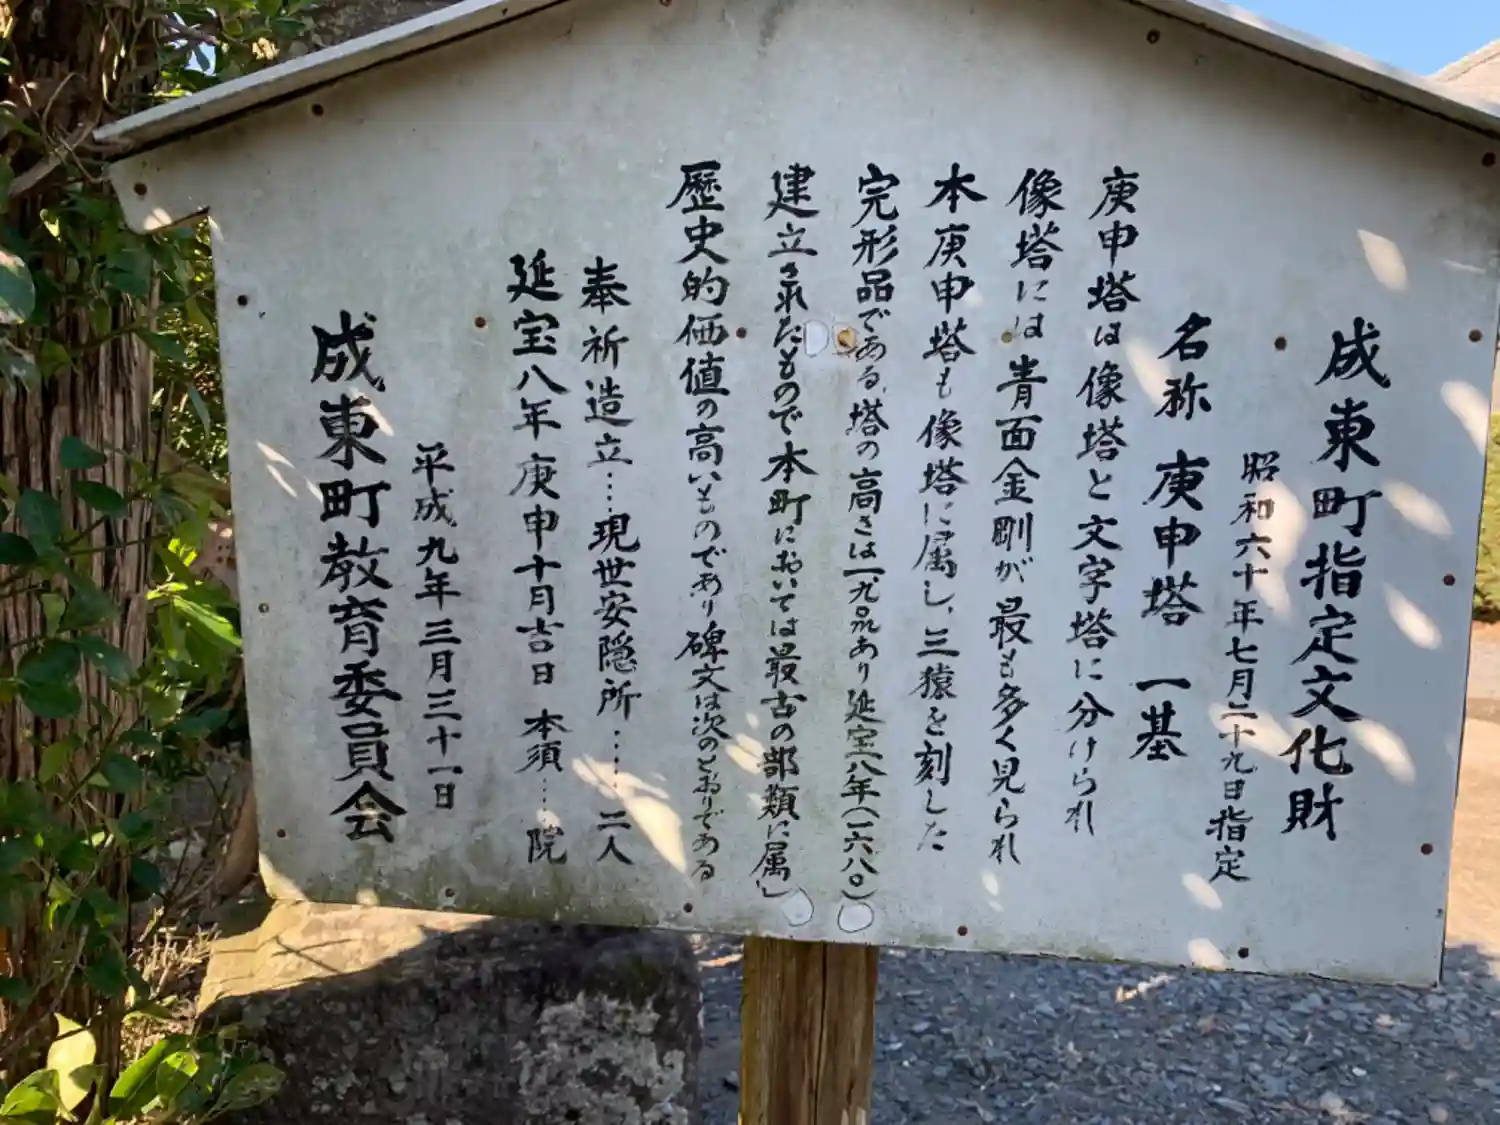 成東町指定文化財
昭和六十年七月二十九日指定
名称 庚申塔 一基
庚申塔は像塔と文字塔に分けられ
像塔には青面金剛が最も多く見られ
本庚申塔も像塔に属し、三猿を刻した
完形品である、塔の高さは一九〇㎝あり延宝八年(一六八〇)
建立されたもので本町においては最古の部類に属し
歴史的価値の高いものであり碑文は次のとおりである
奉祈造立……現世安隠所……二人
延宝八年庚申十月吉日 本須…院
平成九年三月三十一日
成東町教育委員会